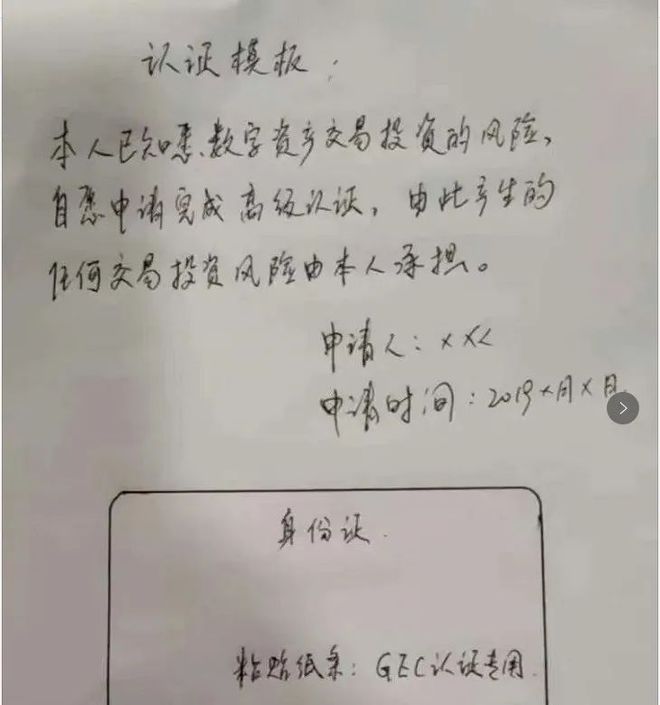 认证模板：
本人已知悉、数字资产交易投资的风险，
自愿申请完成高级认证，由此产生的
任何交易投资风险由本人承担。
申请人：×××
申请时间：2019×月×日
身份证
粘贴纸条：GEC认证专用